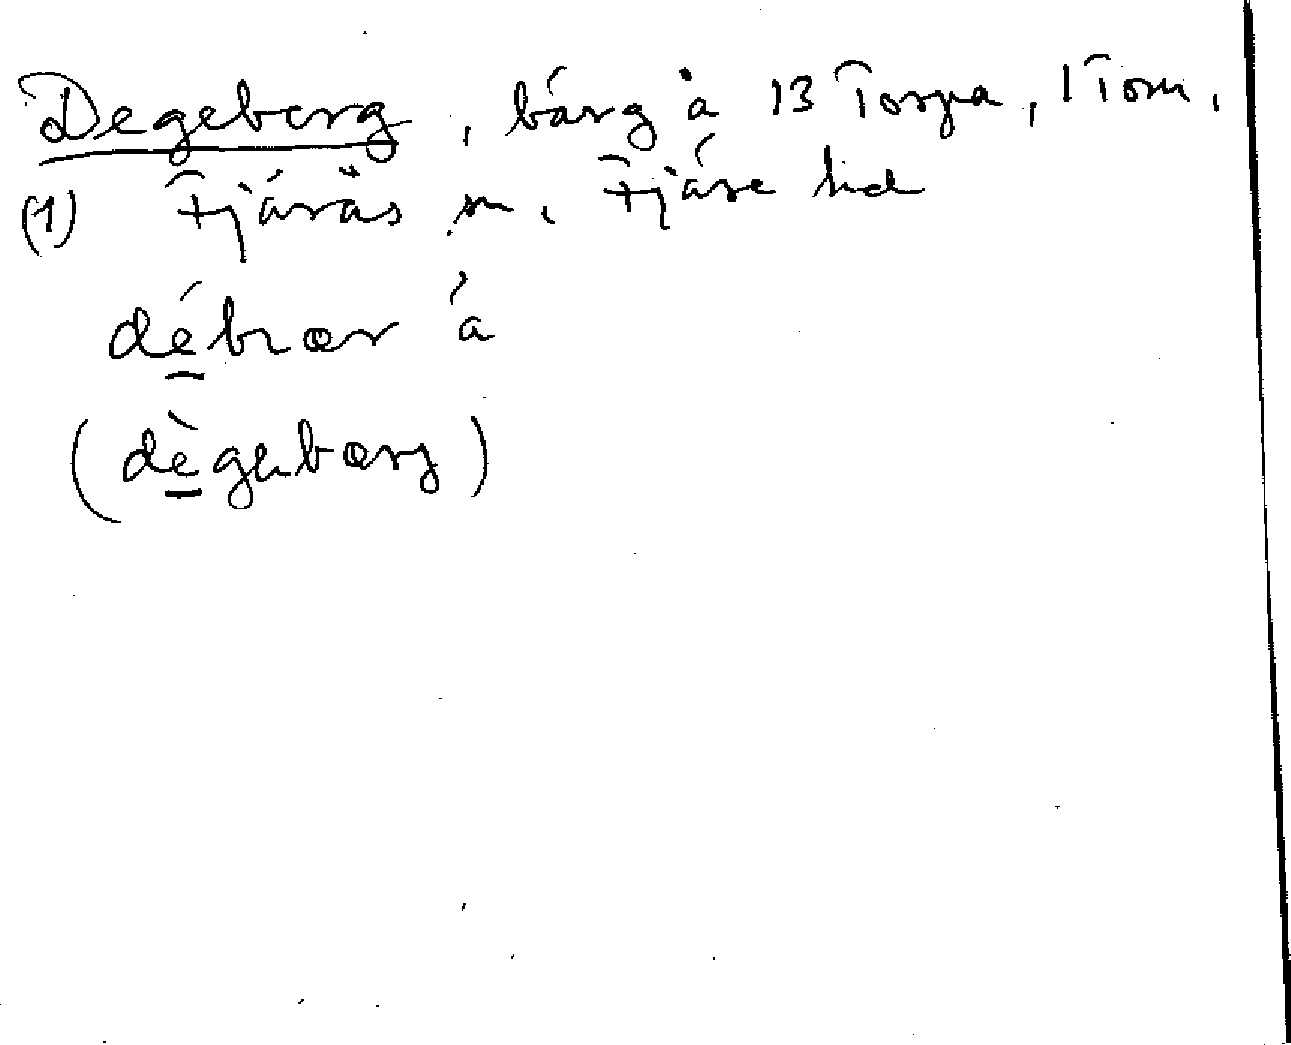 Degeberg, bärg å 13 Torpa, 1 Tom,
(1) Fjärås sn, Fjäre hd
débrær å
(dègebærg)